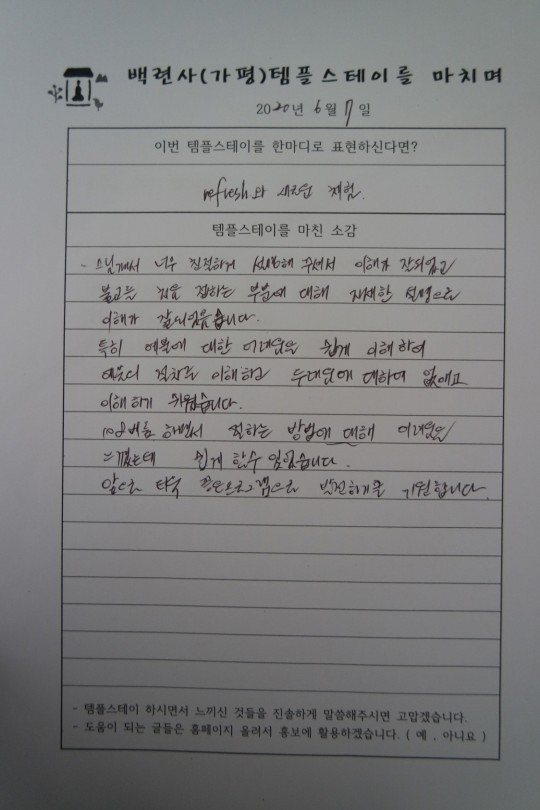 백련사(가평)템플스테이를 마치며
2020년 6월 17일
이번 템플스테이를 한마디로 표현하신다면?
refresh와 새로운 체험.
템플스테이를 마친 소감
- 스님께서 너무 친절하게 설명해 주셔서 이해가 잘되었고
불교를 처음 접하는 부분에 대해 자세한 설명으로
이해가 잘되었습니다.
특히 예불에 대한 어려움을 쉽게 이해하여
예불의 절차를 이해하고 두려움에 대하여 없애고
이해하게 쉬웠습니다.
108배를 하면서 절하는 방법에 대해 어려움을
느꼈는데 쉽게 할수 있었습니다.
앞으로 더욱 좋은프로그램으로 발전하기를 기원합니다.
- 템플스테이 하시면서 느끼신 것들을 진솔하게 말씀해주시면 고맙겠습니다.
- 도움이 되는 글들은 홈페이지 올려서 홍보에 활용하겠습니다. ( 예 , 아니요 )